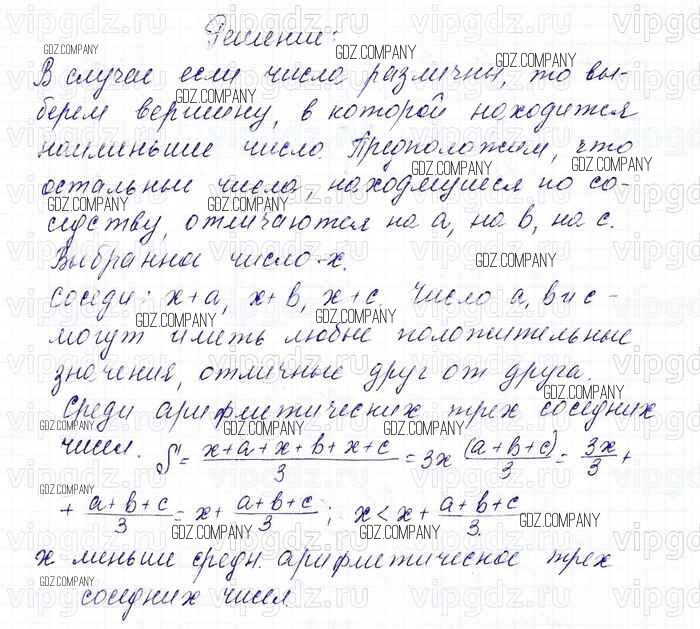 Решение:
В случае если числа различны, то вы-
берем вершину, в которой находится
наименьшие число. Предположем, что
остальные числа, находящиеся по со-
седству, отличаются на a, на b, на c.
Выбранное число - x.
Соседи: x+a, x+b, x+c. Число a, b и c -
могут иметь любые положительные
значения, отличные друг от друга.
Среди арифметических трех соседних
чисел. S = (x+a+x+b+x+c)/3 = 3x (a+b+c)/3 = 3x/3 +
+ (a+b+c)/3 = x + (a+b+c)/3; x < x + (a+b+c)/3.
x меньше средн. арифметическое трех
соседних чисел.
GDZ.COMPANY
vipgdz.ru